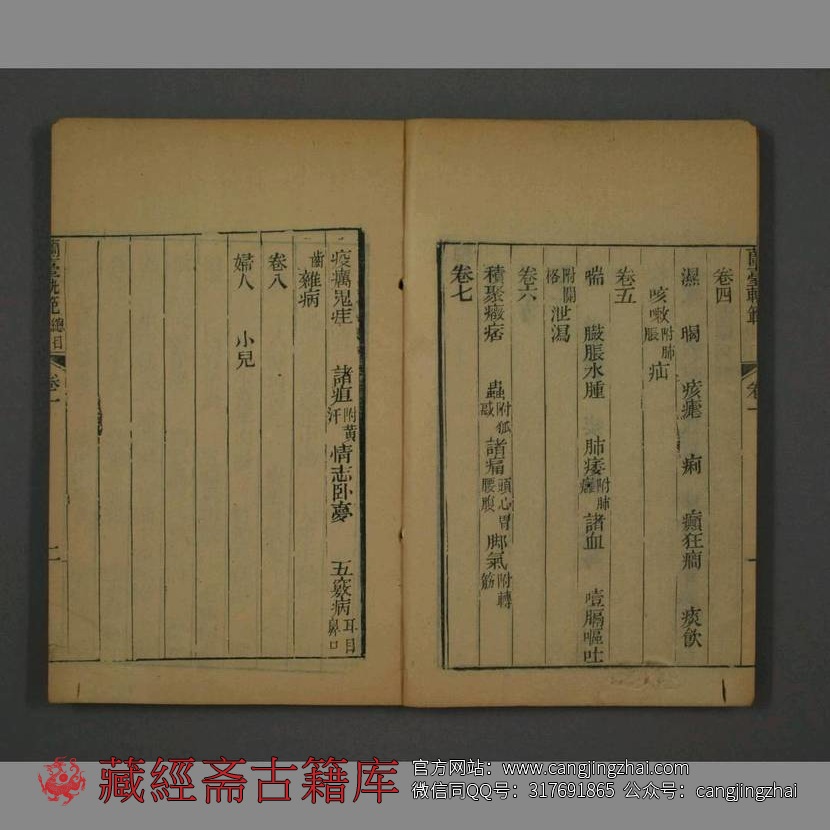 蘭臺軌範
卷四
濕 暍 痎瘧 痢 癲狂癇 痰飲
咳嗽附肺脹 疝
卷五
喘 臌脹水腫 肺痿附肺癰 諸血 噎膈嘔吐
附關格 泄瀉
卷六
積聚癥痞 蟲附狐惑 諸痛頭心胃腰腹 脚氣附轉筋
卷七
疫癘鬼疰 諸疸附黃汗 情志卧夢 五竅病耳目鼻口
齒 雜病
卷八
婦人 小兒
蘭臺軌範總目
二
藏經斋古籍库
官方网站：www.cangjingzhai.com
微信同QQ号：317691865 公众号：cangjingzhai